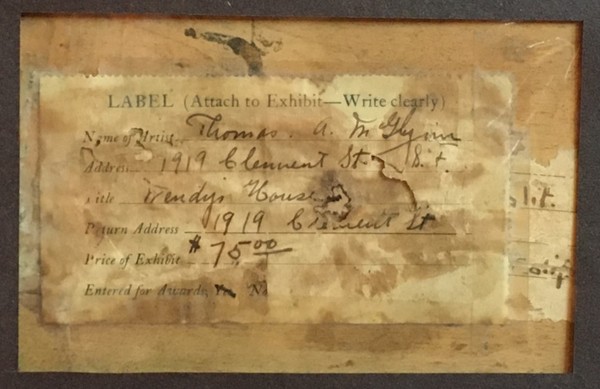 LABEL (Attach to Exhibit—Write clearly)
Name of Artist Thomas. A. McGlynn
Address 1919 Clement St. S. f.
Title Wendy's House
Return Address 1919 Clement St
Price of Exhibit $75.00
Entered for Awards, No